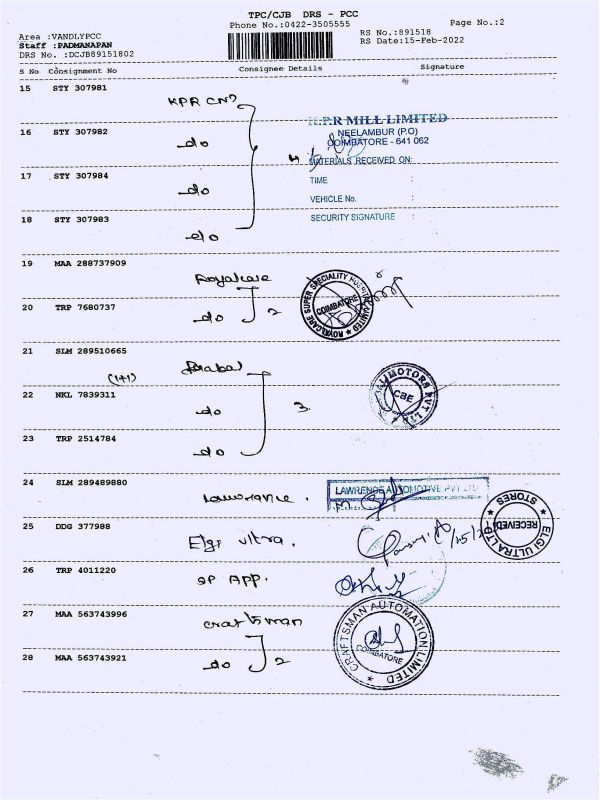 TPC/CJB DRS - PCC
Phone No.:0422-3505555
Page No.:2
Area :VANDLYPCC
RS No.:891518
Staff :PADMANAPAN
RS Date:15-Feb-2022
DRS No. :DCJB89151802
S No Consignment No Consignee Details Signature
15 STY 307981
KPR
K.P.R MILL LIMITED
NEELAMBUR (P.O)
COIMBATORE - 641 062
16 STY 307982
do
4
MATERIALS RECEIVED ON:
17 STY 307984
TIME :
do
VEHICLE No. :
18 STY 307983
SECURITY SIGNATURE :
do
19 MAA 288737909
Royalcare
ROYALCARE SUPER SPECIALITY HOSPITAL LIMITED
COIMBATORE
20 TRP 7680737
do 2
21 SLM 289510665
(1+1)
22 NKL 7839311
do 3
MOTORS PVT LTD
CBE
23 TRP 2514784
do
24 SLM 289489880
Lawrance.
LAWRENCE AUTOMOTIVE PVT LTD
25 DDG 377988
Elgi Ultra.
ELGI ULTRA LTD
RECEIVED
STORES
26 TRP 4011220
SP APP.
27 MAA 563743996
Craftsman
CRAFTSMAN AUTOMATION LIMITED
COIMBATORE
28 MAA 563743921
do 2